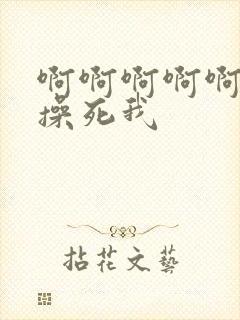 啊啊啊啊啊
操死我
拈花文藝